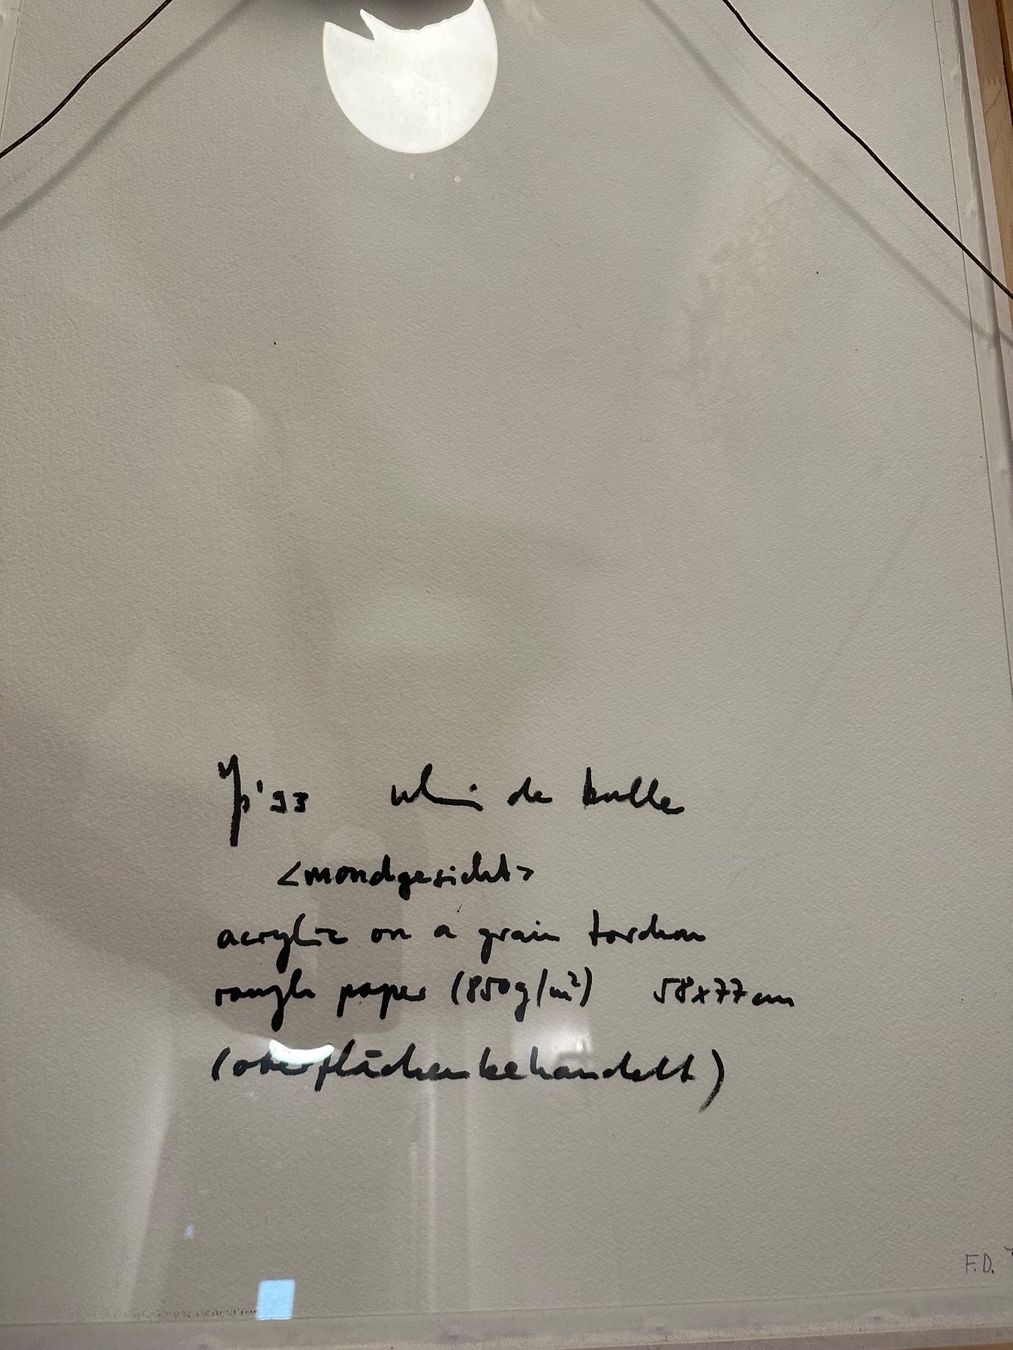 '93 de bulle
<mondgesicht>
acrylic on a grain torchon
rough paper (850g/m²) 58x77cm
(oberflächenbehandelt)
F.D.